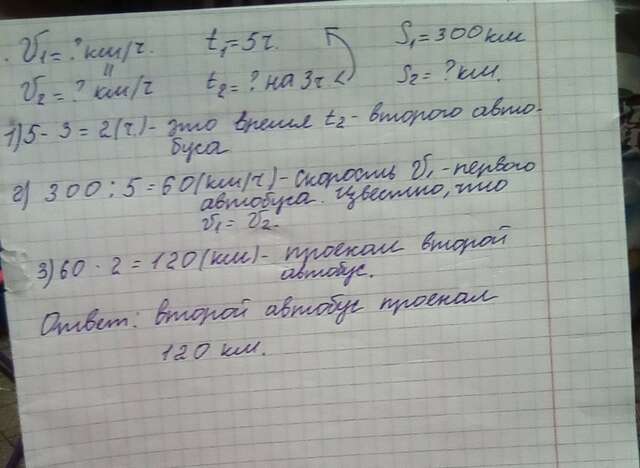 V₁ = ? км/ч. t₁ = 5 ч. S₁ = 300 км
"
V₂ = ? км/ч t₂ = ? на 3ч < S₂ = ? км.
1) 5 - 3 = 2 (ч) - это время t₂ - второго авто-
буса
2) 300 : 5 = 60 (км/ч) - скорость V₁ - первого
автобуса. Известно, что
V₁ = V₂.
3) 60 · 2 = 120 (км) - проехал второй
автобус.
Ответ: второй автобус проехал
120 км.